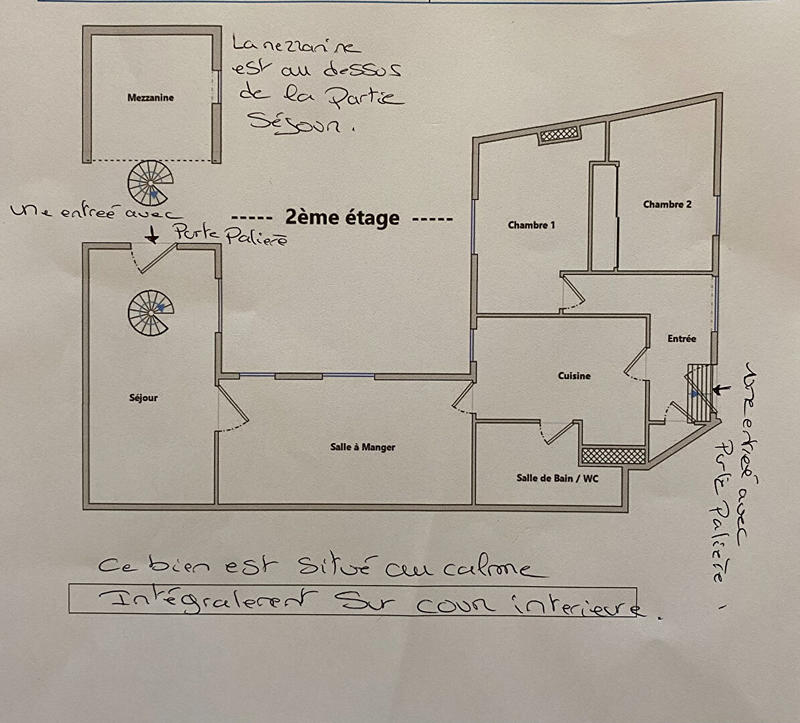 La mezzanine
est au dessus
de la Partie
Séjour.
Mezzanine
une entreé avec
Porte Palierè
----- 2ème étage -----
Chambre 1
Chambre 2
Entrée
Cuisine
Séjour
Salle à Manger
Salle de Bain / WC
une entreé avec
Porte Palière.
Ce bien est situé au calme
Intégralement sur cour interieure.